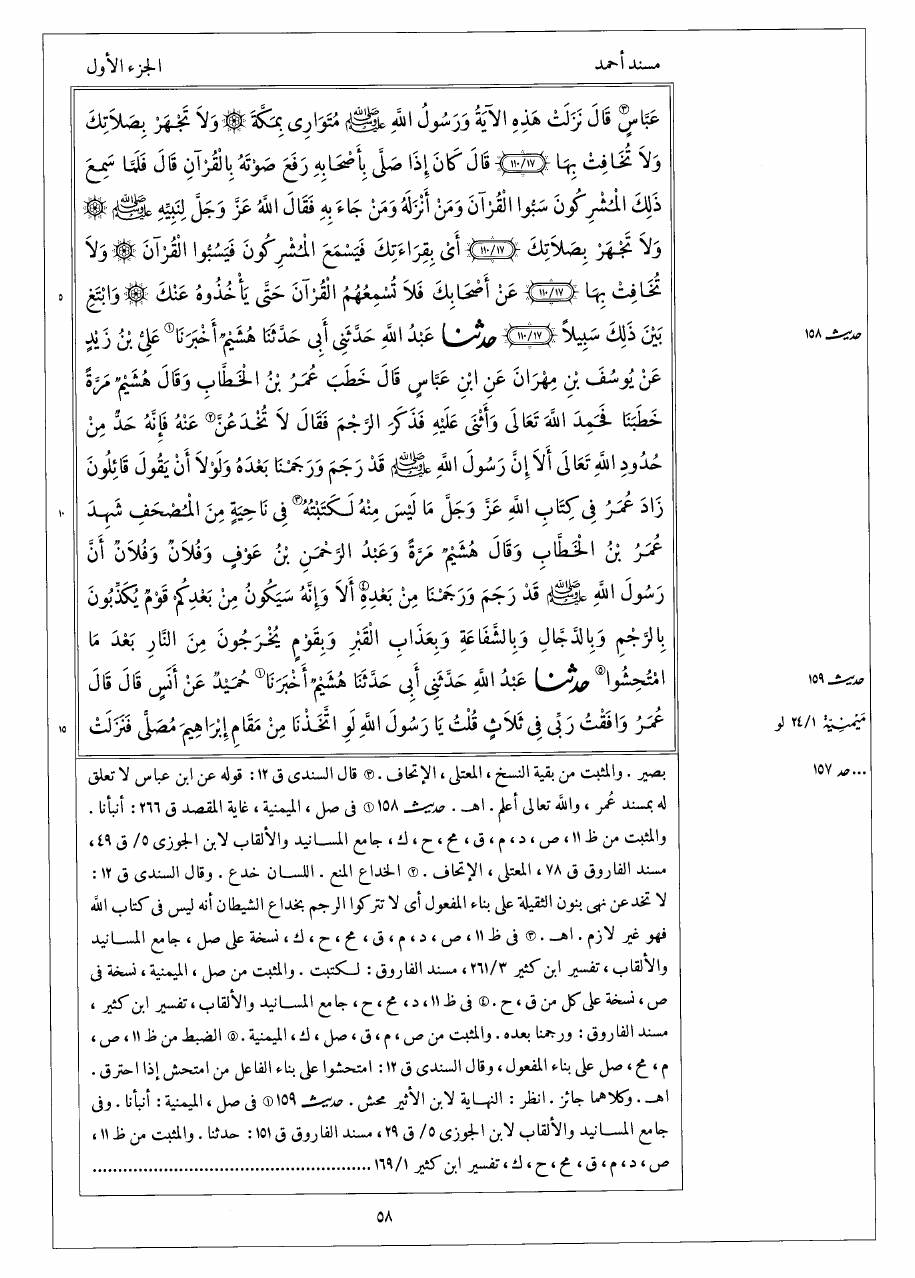 مسند أحمد
الجزء الأول
عَبَّاسٍ ③ قَالَ نَزَلَتْ هَذِهِ الآيَةُ وَرَسُولُ اللَّهِ ﷺ مُتَوَارِى بِمَكَّةَ ۞ وَلَا تَجْهَرْ بِصَلَاتِكَ
وَلَا تُخَافِتْ بِهَا ﴿١١٠/١٧﴾ قَالَ كَانَ إِذَا صَلَّى بِأَصْحَابِهِ رَفَعَ صَوْتَهُ بِالْقُرْآنِ قَالَ فَلَمَّا سَمِعَ
ذَلِكَ الْمُشْرِكُونَ سَبُّوا الْقُرْآنَ وَمَنْ أَنْزَلَهُ وَمَنْ جَاءَ بِهِ فَقَالَ اللَّهُ عَزَّ وَجَلَّ لِنَبِيِّهِ ﷺ ۞
وَلَا تَجْهَرْ بِصَلَاتِكَ ﴿١١٠/١٧﴾ أَىْ بِقِرَاءَتِكَ فَيَسْمَعَ الْمُشْرِكُونَ فَيَسُبُّوا الْقُرْآنَ ۞ وَلَا
تُخَافِتْ بِهَا ﴿١١٠/١٧﴾ عَنْ أَصْحَابِكَ فَلَا تُسْمِعُهُمُ الْقُرْآنَ حَتَّى يَأْخُذُوهُ عَنْكَ ۞ وَابْتَغِ
٥
بَيْنَ ذَلِكَ سَبِيلاً ﴿١١٠/١٧﴾ حدثنا عَبْدُ اللَّهِ حَدَّثَنِى أَبِى حَدَّثَنَا هُشَيْمٌ أَخْبَرَنَا ① عَلِىُّ بْنُ زَيْدٍ
حديث ١٥٨
عَنْ يُوسُفَ بْنِ مِهْرَانَ عَنِ ابْنِ عَبَّاسٍ قَالَ خَطَبَ عُمَرُ بْنُ الْخَطَّابِ وَقَالَ هُشَيْمٌ مَرَّةً
خَطَبَنَا فَحَمِدَ اللَّهَ تَعَالَى وَأَثْنَى عَلَيْهِ فَذَكَرَ الرَّجْمَ فَقَالَ لَا تُخْدَعُنَّ ② عَنْهُ فَإِنَّهُ حَدٌّ مِنْ
حُدُودِ اللَّهِ تَعَالَى أَلَا إِنَّ رَسُولَ اللَّهِ ﷺ قَدْ رَجَمَ وَرَجَمْنَا بَعْدَهُ وَلَوْلَا أَنْ يَقُولَ قَائِلُونَ
زَادَ عُمَرُ فِى كِتَابِ اللَّهِ عَزَّ وَجَلَّ مَا لَيْسَ مِنْهُ لَكَتَبْتُهُ ③ فِى نَاحِيَةٍ مِنَ الْمُصْحَفِ شَهِدَ
١٠
عُمَرُ بْنُ الْخَطَّابِ وَقَالَ هُشَيْمٌ مَرَّةً وَعَبْدُ الرَّحْمَنِ بْنُ عَوْفٍ وَفُلَانٌ وَفُلَانٌ أَنَّ
رَسُولَ اللَّهِ ﷺ قَدْ رَجَمَ وَرَجَمْنَا مِنْ بَعْدِهِ ④ أَلَا وَإِنَّهُ سَيَكُونُ مِنْ بَعْدِكُمْ قَوْمٌ يُكَذِّبُونَ
بِالرَّجْمِ وَبِالدَّجَّالِ وَبِالشَّفَاعَةِ وَبِعَذَابِ الْقَبْرِ وَبِقَوْمٍ يُخْرَجُونَ مِنَ النَّارِ بَعْدَ مَا
امْتُحِشُوا ⑤ حدثنا عَبْدُ اللَّهِ حَدَّثَنِى أَبِى حَدَّثَنَا هُشَيْمٌ أَخْبَرَنَا ① حُمَيْدٌ عَنْ أَنَسٍ قَالَ قَالَ
حديث ١٥٩
عُمَرُ وَافَقْتُ رَبِّى فِى ثَلَاثٍ قُلْتُ يَا رَسُولَ اللَّهِ لَوِ اتَّخَذْنَا مِنْ مَقَامِ إِبْرَاهِيمَ مُصَلًّى فَنَزَلَتْ
١٥
مَيْمَنِيَّة ٢٤/١ لو
بصير . والمثبت من بقية النسخ ، المعتلى ، الإتحاف . ③ قال السندى ق ١٢: قوله عن ابن عباس لا تعلق
...حد ١٥٧
له بمسند عُمر ، والله تعالى أعلم . اهـ . حديث ١٥٨ ① فى صل ، الميمنية ، غاية المقصد ق ٢٦٦: أنبأنا .
والمثبت من ظ ١١، ص ، د ، م ، ق ، مح ، ح ، ك ، جامع المسانيد والألقاب لابن الجوزى ٥/ ق ٤٩،
مسند الفاروق ق ٧٨، المعتلى ، الإتحاف . ② الخداع المنع . اللسان خدع . وقال السندى ق ١٢:
لا تخدعن نهى بنون الثقيلة على بناء المفعول أى لا تتركوا الرجم بخداع الشيطان أنه ليس فى كتاب الله
فهو غير لازم . اهـ . ③ فى ظ ١١، ص ، د ، م ، ق ، مح ، ح ، ك ، نسخة على صل ، جامع المسانيد
والألقاب ، تفسير ابن كثير ٢٦١/٣، مسند الفاروق : لكتبت . والمثبت من صل ، الميمنية ، نسخة فى
ص ، نسخة على كل من ق ، ح . ④ فى ظ ١١، د ، مح ، ح ، جامع المسانيد والألقاب ، تفسير ابن كثير ،
مسند الفاروق : ورجمنا بعده . والمثبت من ص ، م ، ق ، صل ، ك ، الميمنية . ⑤ الضبط من ظ ١١، ص ،
م ، مح ، صل على بناء المفعول ، وقال السندى ق ١٢: امتحشوا على بناء الفاعل من امتحش إذا احترق .
اهـ . وكلاهما جائز . انظر : النهاية لابن الأثير محش . حديث ١٥٩ ① فى صل ، الميمنية : أنبأنا . وفى
جامع المسانيد والألقاب لابن الجوزى ٥/ ق ٢٩، مسند الفاروق ق ١٥١: حدثنا . والمثبت من ظ ١١،
ص ، د ، م ، ق ، مح ، ح ، ك ، تفسير ابن كثير ١٦٩/١ ......................................................
٥٨